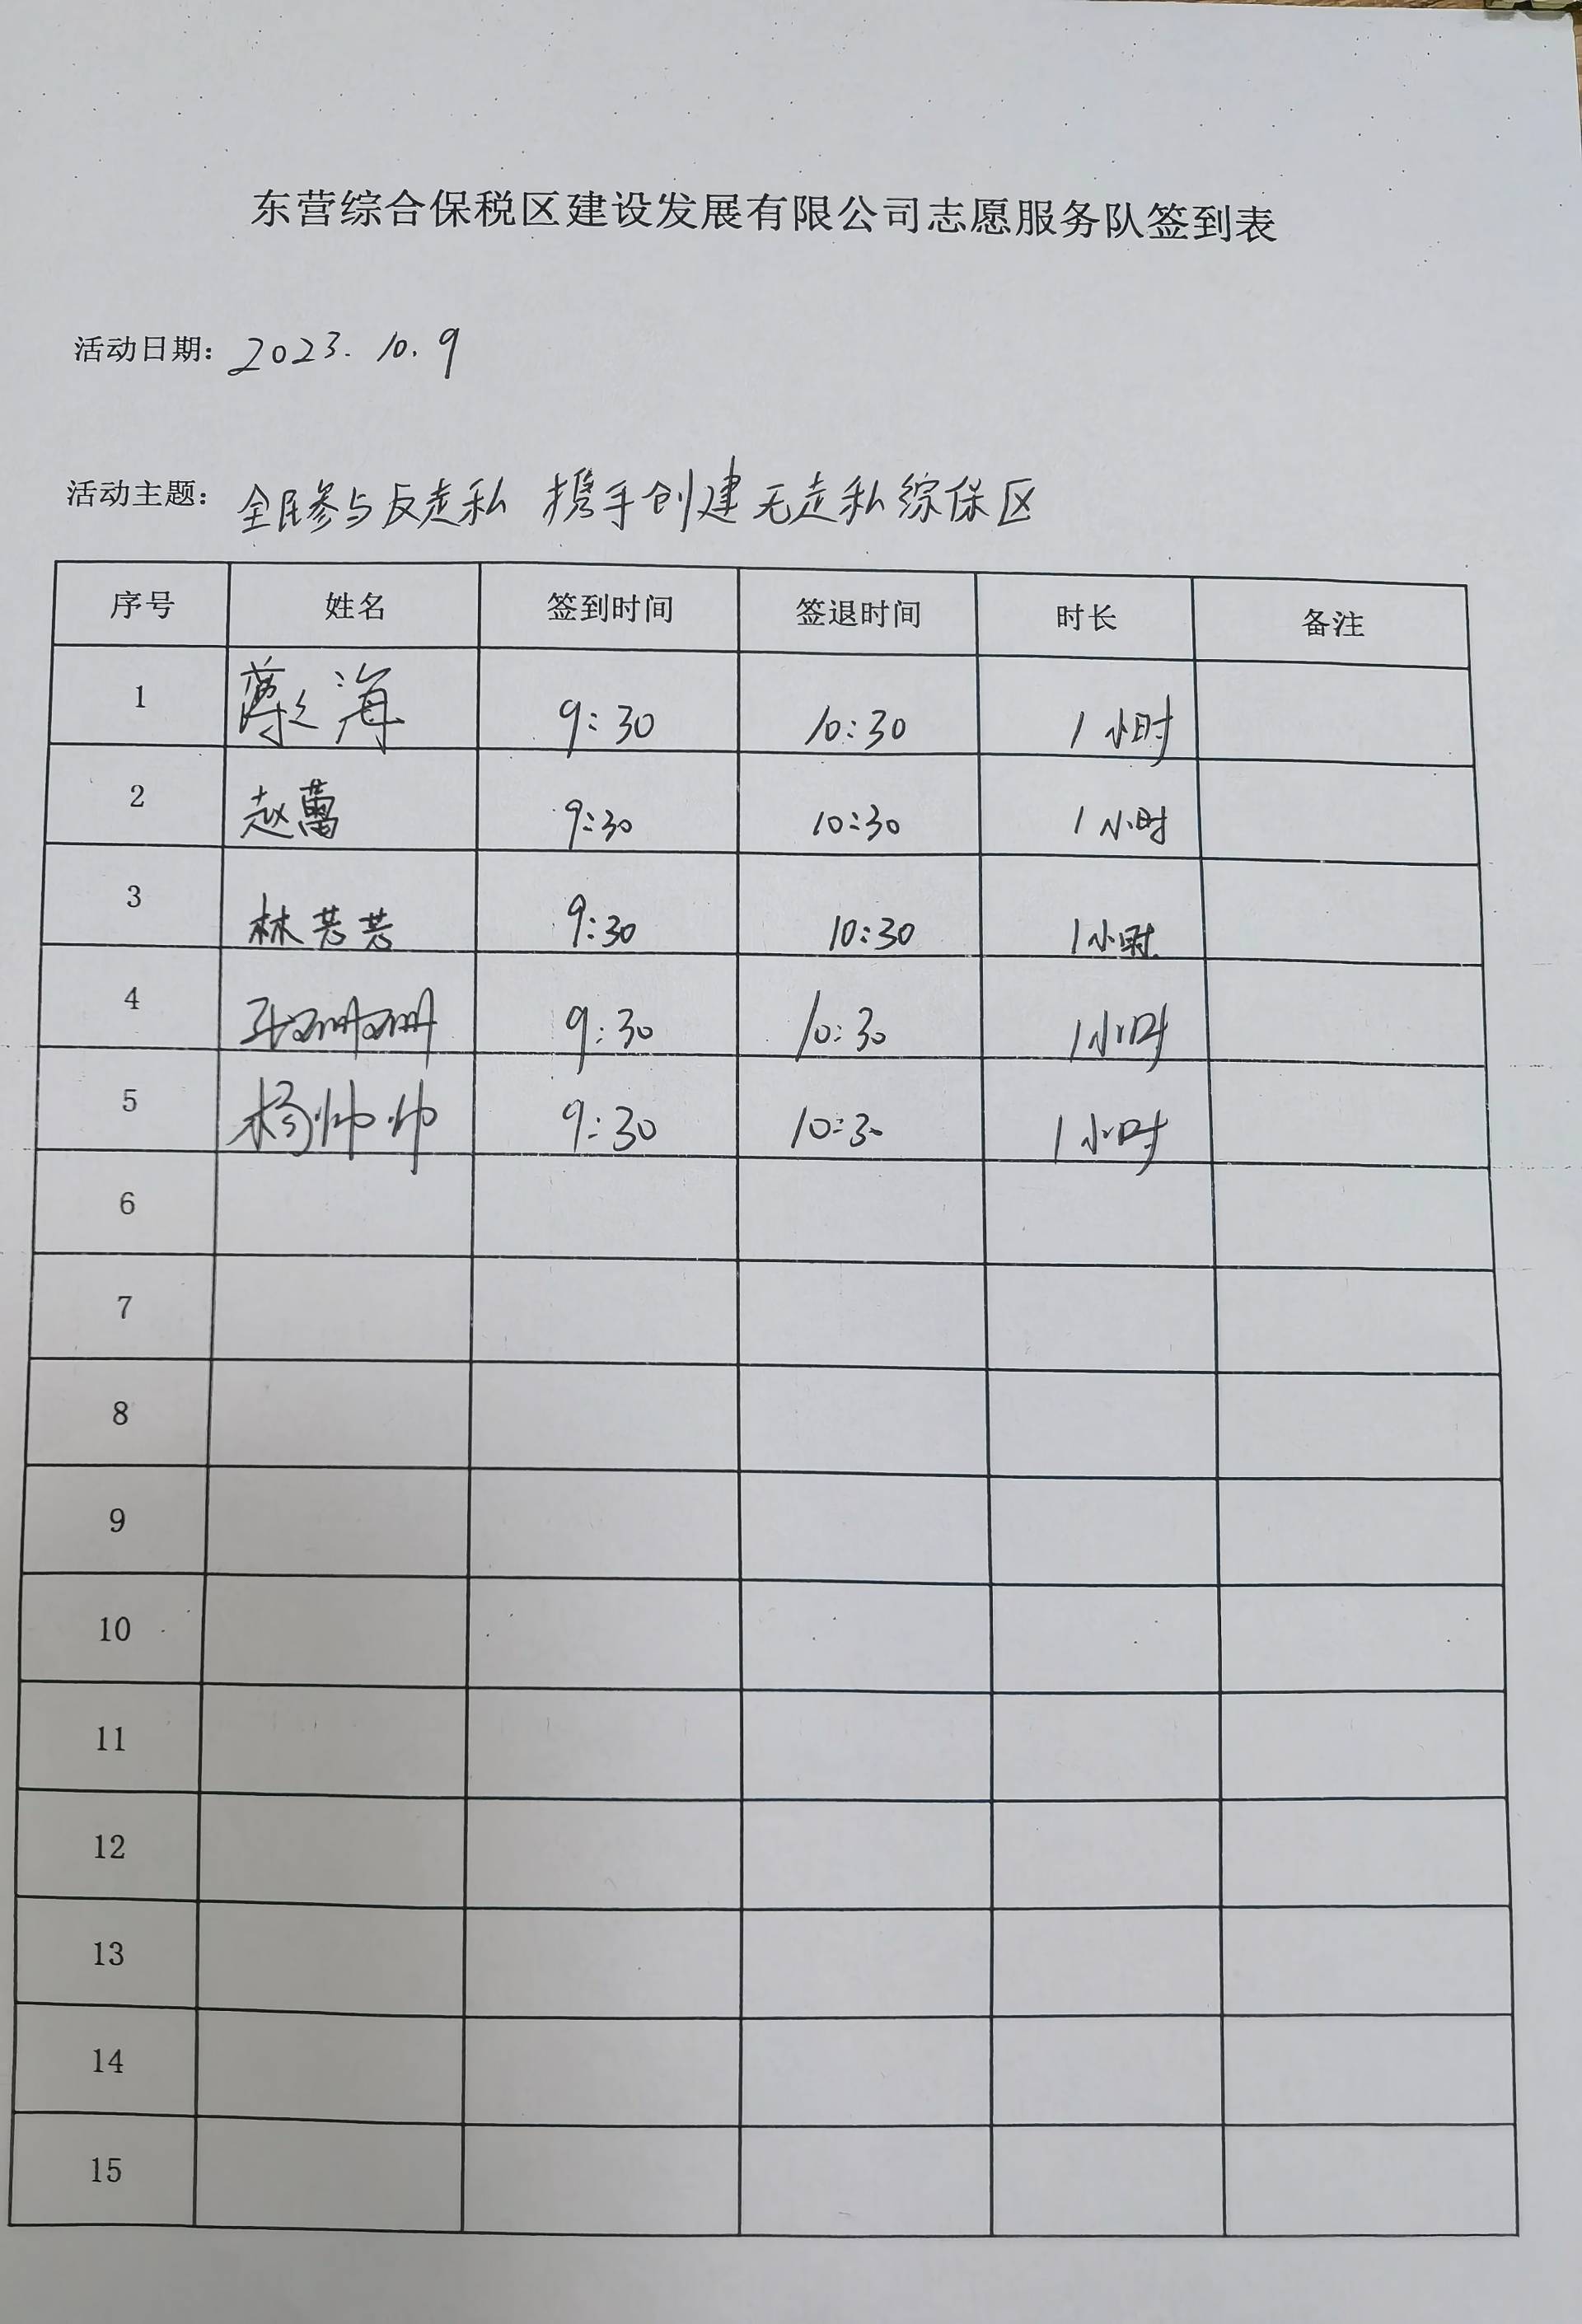 东营综合保税区建设发展有限公司志愿服务队签到表
活动日期：2023.10.9
活动主题：全民参与反走私 携手创建无走私综保区
序号 姓名 签到时间 签退时间 时长 备注
1 海 9:30 10:30 1小时
2 赵 9:30 10:30 1小时
3 林芸芸 9:30 10:30 1小时
4 珊珊 9:30 10:30 1小时
5 杨帅帅 9:30 10:30 1小时
6
7
8
9
10
11
12
13
14
15